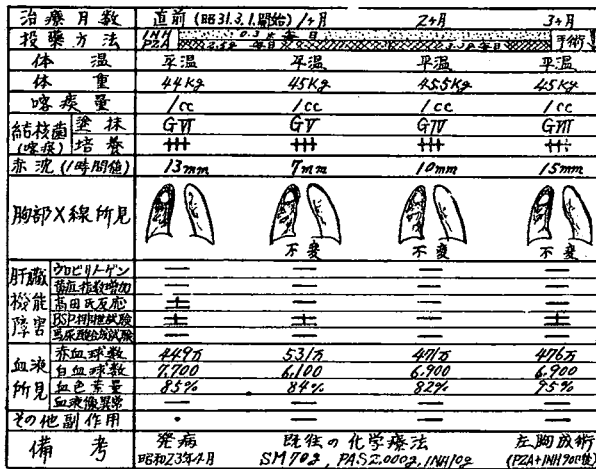 治療月数 直前(昭31.3.1.開始) 1ヶ月 2ヶ月 3ヶ月
投薬方法 INH 0.3g 毎日
PZA 毎日 手術
体温 平温 平温 平温 平温
体重 44Kg 45Kg 45.5Kg 45Kg
喀痰量 1cc 1cc 1cc 1cc
結核菌(喀痰) 塗抹 GⅥ GⅤ GⅣ GⅦ
培養 卅 卅 卅 卅
赤沈(1時間値) 13mm 7mm 10mm 15mm
胸部X線所見 不変 不変 不変
肝臓機能障害 ウロビリノーゲン — — — —
黄疸指数増加 — — — —
高田氏反応 ± — — —
BSP排泄試験 + + — +
馬尿酸合成試験 — — — —
血液所見 赤血球数 449万 531万 471万 476万
白血球数 7,700 6,100 6,900 6,900
血色素量 85% 84% 82% 95%
血液像異常 — — — —
その他副作用 — — —
備考 発病 既往の化学療法 左胸成術
昭和23年4月 SM70g, PAS2,000g, INH10g